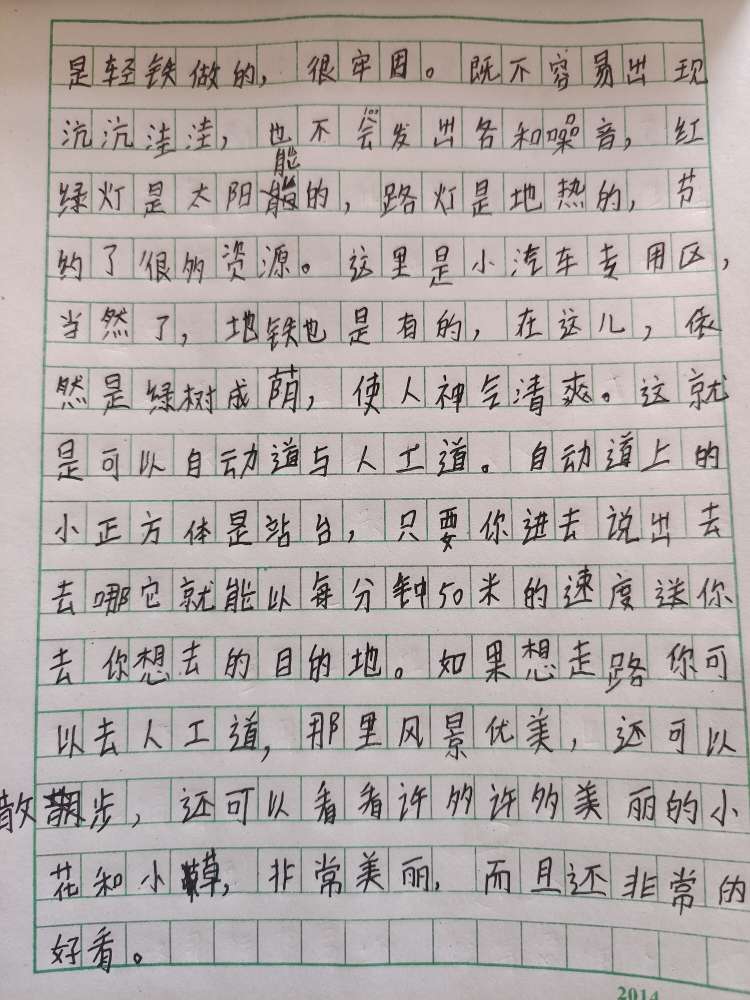 是轻铁做的，很牢因。既不容易出现
沆沆洼洼，也不会发出各和噪音，红
能
绿灯是太阳能的，路灯是地热的，节
约了很多资源。这里是小汽车专用区，
当然了，地铁也是有的，在这儿，依
然是绿树成荫，使人神气清爽。这就
是可以自动道与人工道。自动道上的
小正方体是站台，只要你进去说出去
去哪它就能以每分钟50米的速度送你
去你想去的目的地。如果想走路你可
以去人工道，那里风景优美，还可以
散步，还可以看看许多许多美丽的小
花和小草，非常美丽，而且还非常的
好看。
2014